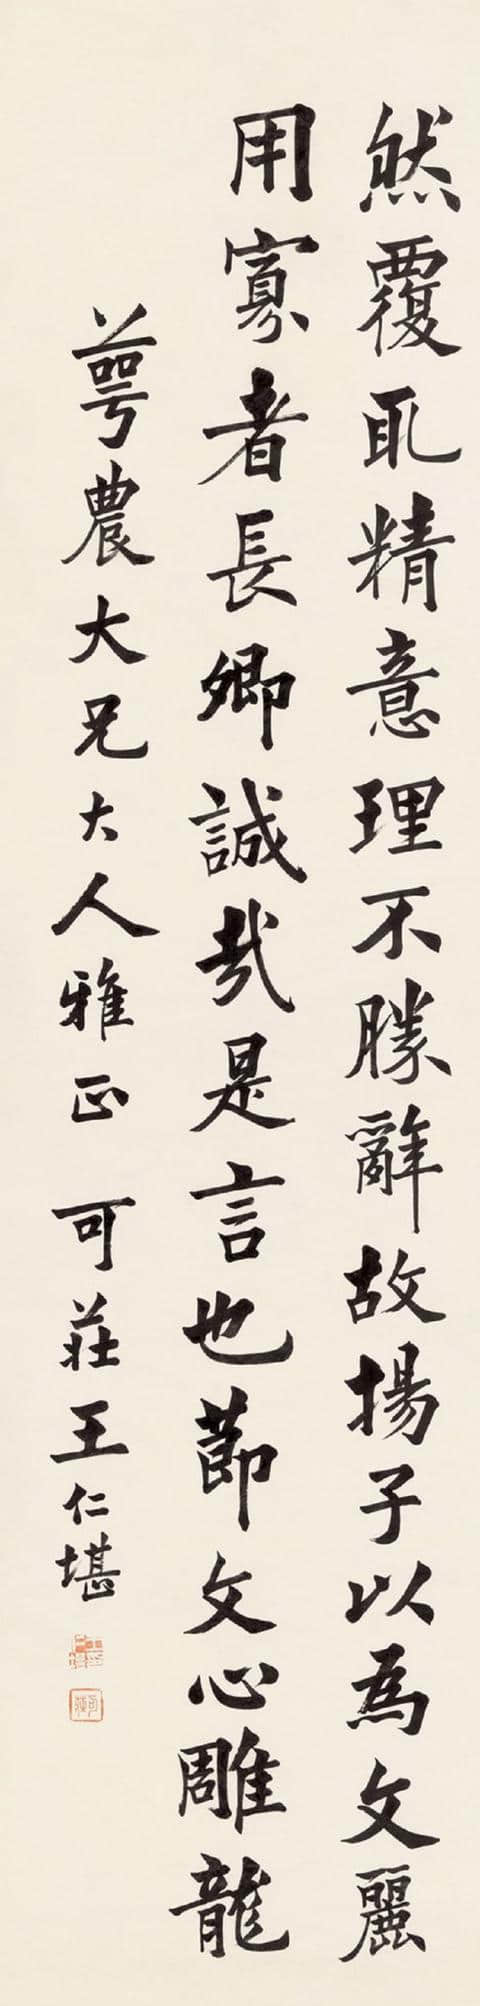 然覆取精意理不勝辭故揚子以為文麗
用寡者長卿誠哉是言也莭文心雕龍
萼農大兄大人雅正 可莊王仁堪